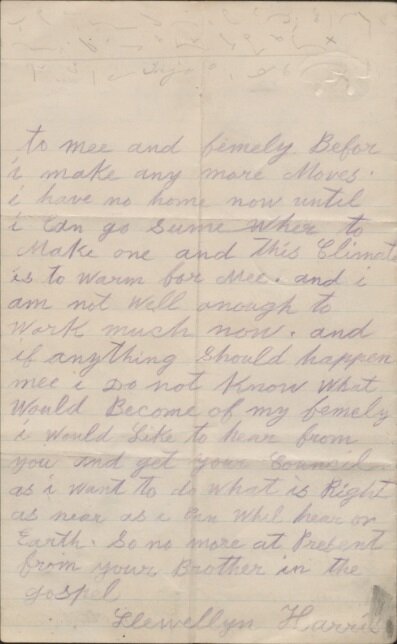 to mee and femely Befor
i make any more Moves.
i have no home now until
i Can go Sume Wher to
Make one and this Climate
is to Warm for Mee. and i
am not Well enough to
Work much now. and
if anything Should happen
mee i Do not Know What
Would Become of my femely
i would Like to hear from
you and get your Council
as i want to do what is Right
as near as i Can Whil hear on
Earth. So no more at Present
from your Brother in the
gospel
Llewellyn Harris